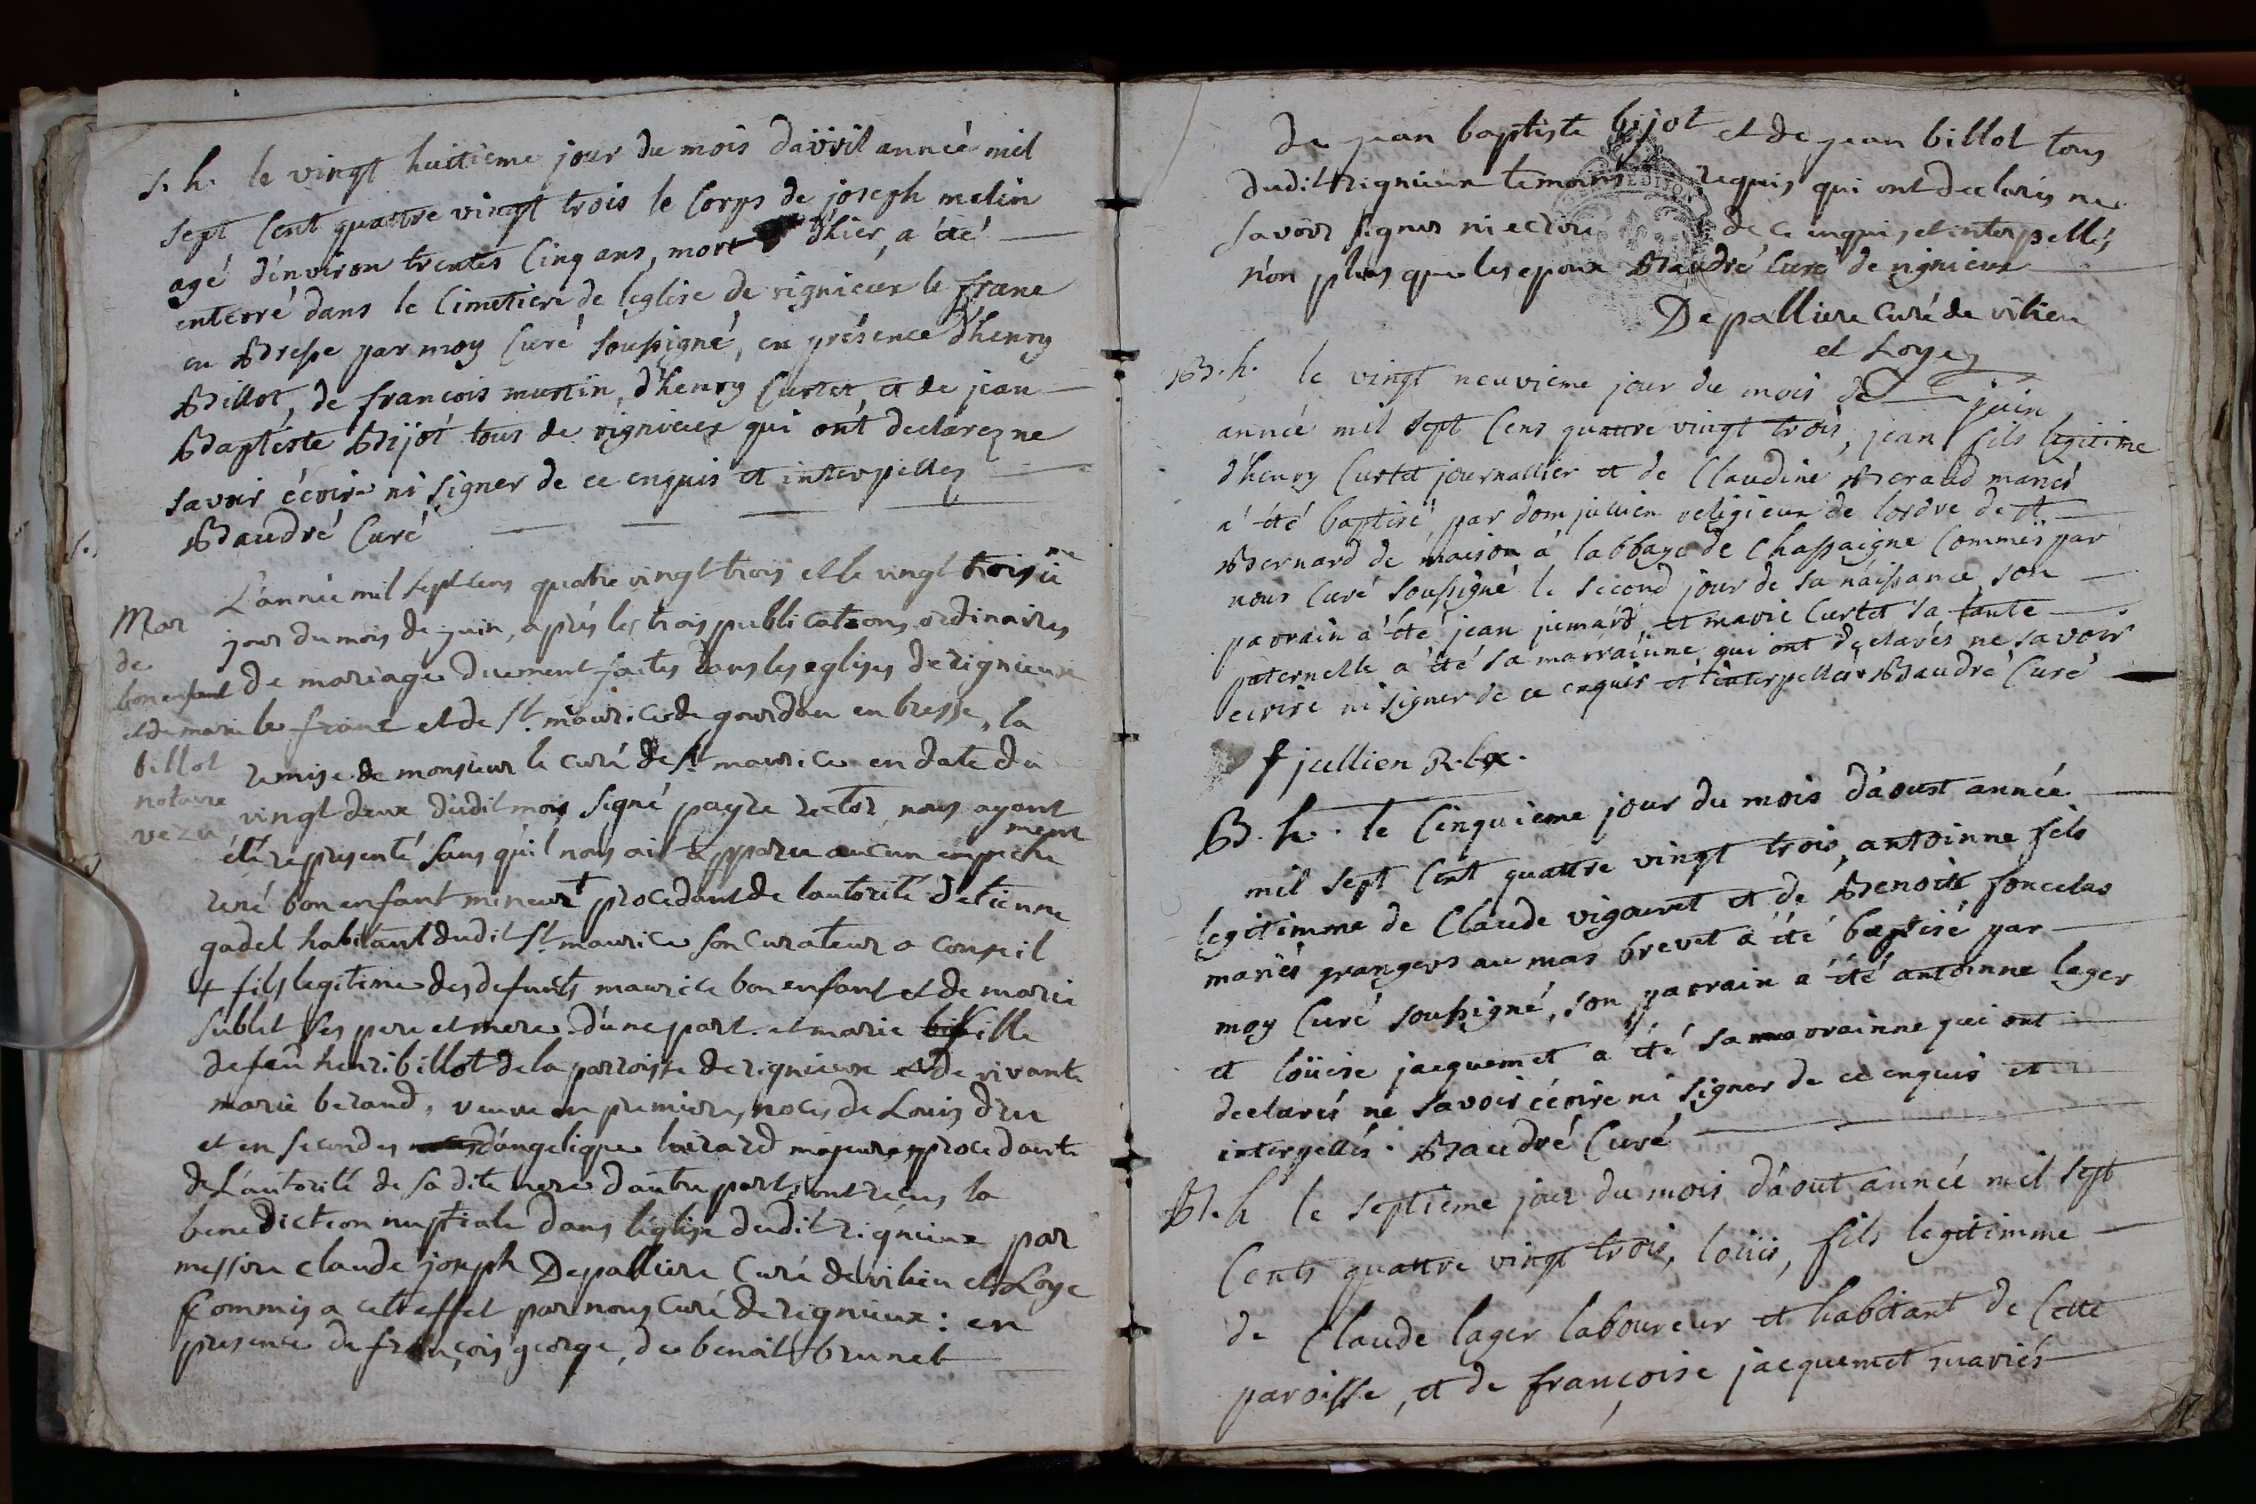 S. h. le vingt huitieme jour du mois d'avril année mil
sept Cent quattre vingt trois le Corps de joseph melin
agé d'environ trentes Cinq ans, mort d'hier, a été
enterré dans le Cimetiere de leglise de rignieux le franc
en Bresse par moy Curé soussigné, en présence d'henry
Billot, de francois martin, d'henry Curtet, et de jean
Baptéste Bijot tous de rignieux qui ont declarez ne
savoir écrire ni signer de ce enquis et interpellez
Baudré Curé
L'année mil sept cens quatre vingt trois et le vingt troisie
jour du mois de juin, après les trois publications ordinaires
de mariage duement faites dans les eglises de rignieux
le franc et de St. maurice de gourdan en bresse, la
remise de monsieur le curé de st maurice en date du
vingt deux dudit mois signé payre rector, nous ayant
été representé sans qu'il nous ait apparu aucun empeche
ment
rené bon enfant mineur + procedant de lautorité d'etienne
gadel habitant dudit St. maurice son curateur a conseil
+ fils legitime des defunts maurice bon enfant et de marie
sublet ses pere et mere d'une part. et marie fille
de feu henri billot de la parroisse de rignieux et de vivante
marie beraud, veuve en premieres noces de Louis dru
et en secondes d'angelique majeure procedante
de L'autorité de sa dite mere d'autre part, ont reçus la
benediction nuptiale dans l'église dudit rignieux par
messire claude joseph Depalliere Curé de vilieu et Loye
Commis a cet effet par nous Curé de rignieux : en
presence de françois george, de benoit brunet
Mar
de
bon enfant
et de marie
billot
notaire
de jean baptiste bijot et de jean billot tous
dudit rignieux temoins requis, qui ont declarés ne
savoir signer ni ecrire de ce enquis et interpellés
n'on plus que les epoux Baudré Curé de rignieux
Depalliere curé de vilieu
et Loyes
B. h. le vingt neuvieme jour du mois de juin
année mil sept Cens quattre vingt trois, jean fils legitime
d'henry Curtet journallier et de Claudine Beraud mariés
a été baptisé par dom jullien religieux de lordre de st
Bernard de maison a labbaye de Chassaigne Commis par
nous Curé soussigné le second jour de sa naissance, son
parrain a été jean jumard, et marie Curtet sa tante
paternelle a été sa marrainne qui ont declarés ne savoir
ecrire ni signer de ce enquis et interpellés Baudré Curé
f jullien R. bx.
B. h. le Cinquieme jour du mois d'aoust année
mil sept Cent quattre vingt trois, antoinne fils
legitimme de Claude vigouret et de Benoite foncelas
mariés grangers au mas brevet a été baptisé par
moy Curé soussigné, son parrain a été antoinne lager
et loüise jacquemet a été sa marrainne qui ont
declarés ne savoir écrire ni signer de ce enquis et
interpellés. Baudré Curé
B. h le septieme jour du mois d'aout année mil sept
Cents quattre vingt trois, loüis, fils legitimme
de Claude lager laboureur et habitant de Cette
paroisse, et de françoise jacquemet mariés